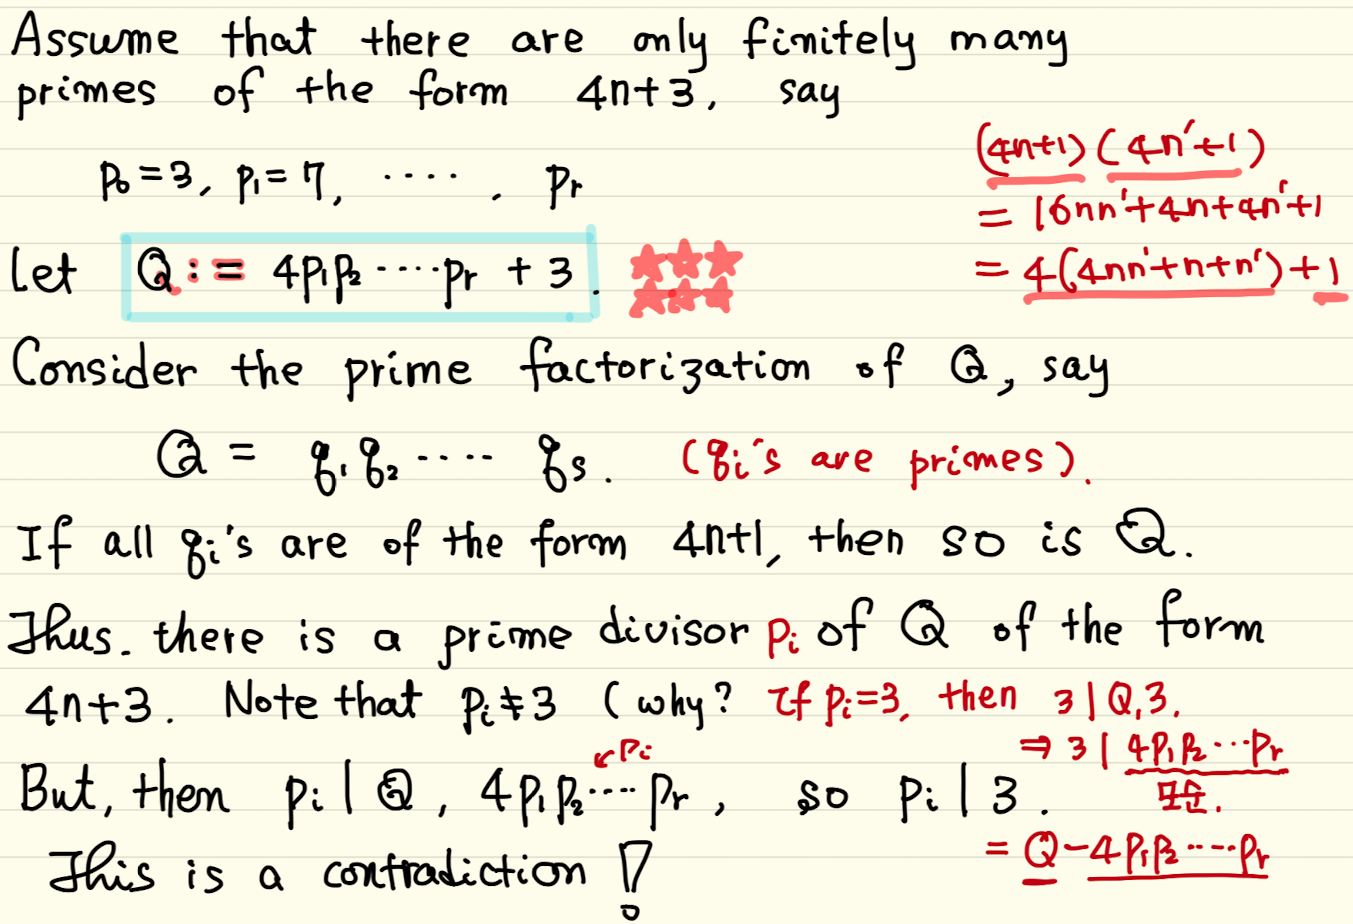 Assume that there are only finitely many
primes of the form 4n+3, say
p₀=3, p₁=7, ····, pᵣ
(4n+1)(4n'+1)
= 16nn'+4n+4n'+1
= 4(4nn'+n+n')+1
Let Q := 4p₁p₂····pᵣ + 3.
Consider the prime factorization of Q, say
Q = q₁q₂····qₛ. (qᵢ's are primes).
If all qᵢ's are of the form 4n+1, then so is Q.
Thus. there is a prime divisor pᵢ of Q of the form
4n+3. Note that pᵢ≠3 (why? If pᵢ=3, then 3|Q,3.
⇒ 3|4p₁p₂···pᵣ
모순.
↙pᵢ
But, then pᵢ|Q, 4p₁p₂····pᵣ, so pᵢ|3.
= Q-4p₁p₂····pᵣ
This is a contradiction!